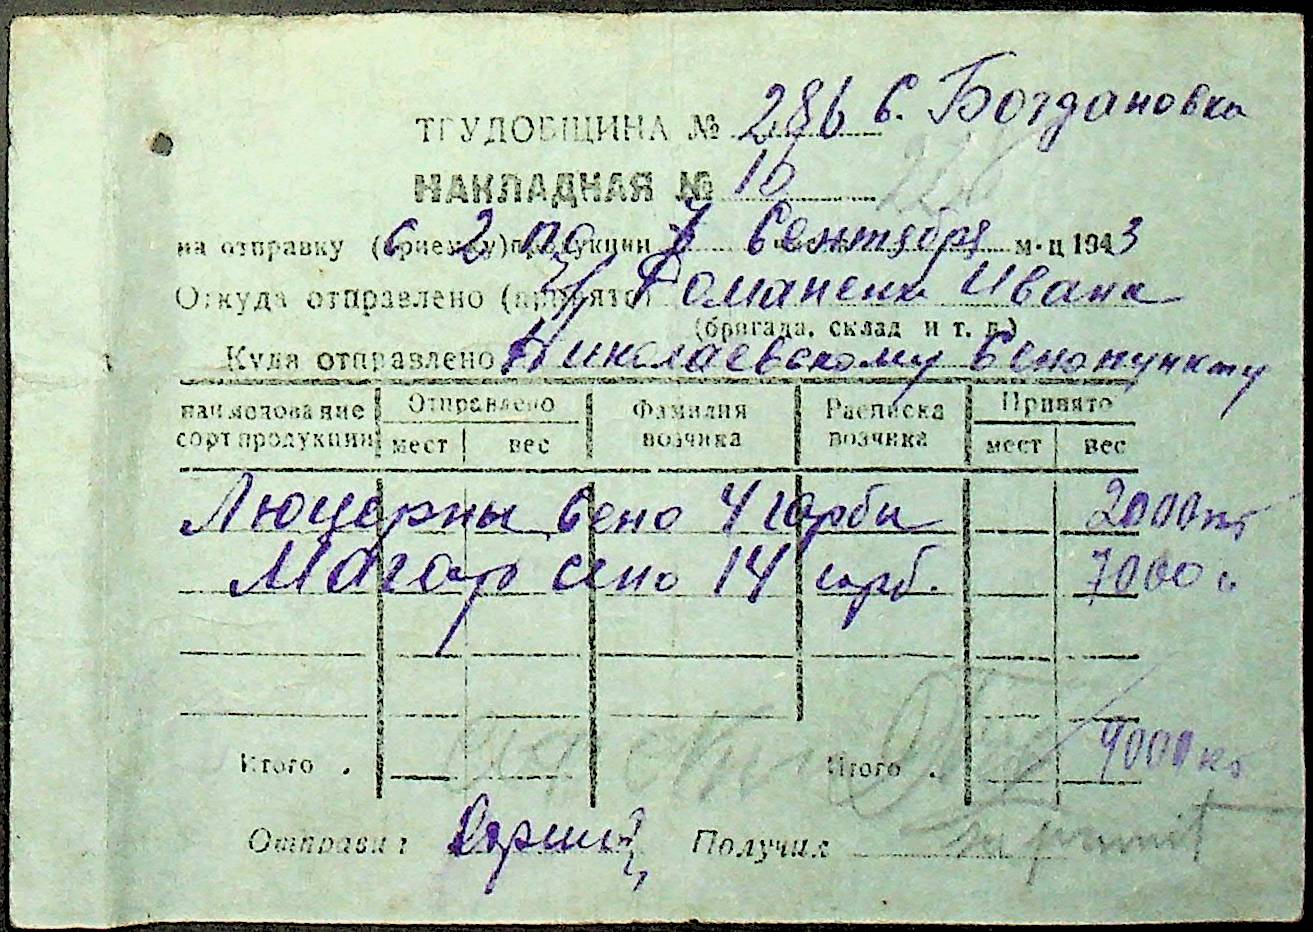 ТРУДОБЩИНА № 286 с. Богдановка
НАКЛАДНАЯ № 16 226
на отправку (приемку) продукции с 2 по 7 Сентября м-ц 1943
Откуда отправлено (принято) Романенки Ивана
(бригада, склад и т. п.)
Куда отправлено Николаевскому сенопункту
наименование сорт продукции Отправлено мест вес Фамилия возчика Расписка возчика Принято мест вес
Люцерны сено 4 гарбы 2000 кг
Магар сено 14 гарб. 7000 "
Итого . Итого . 9000 кг
Отправил Получил